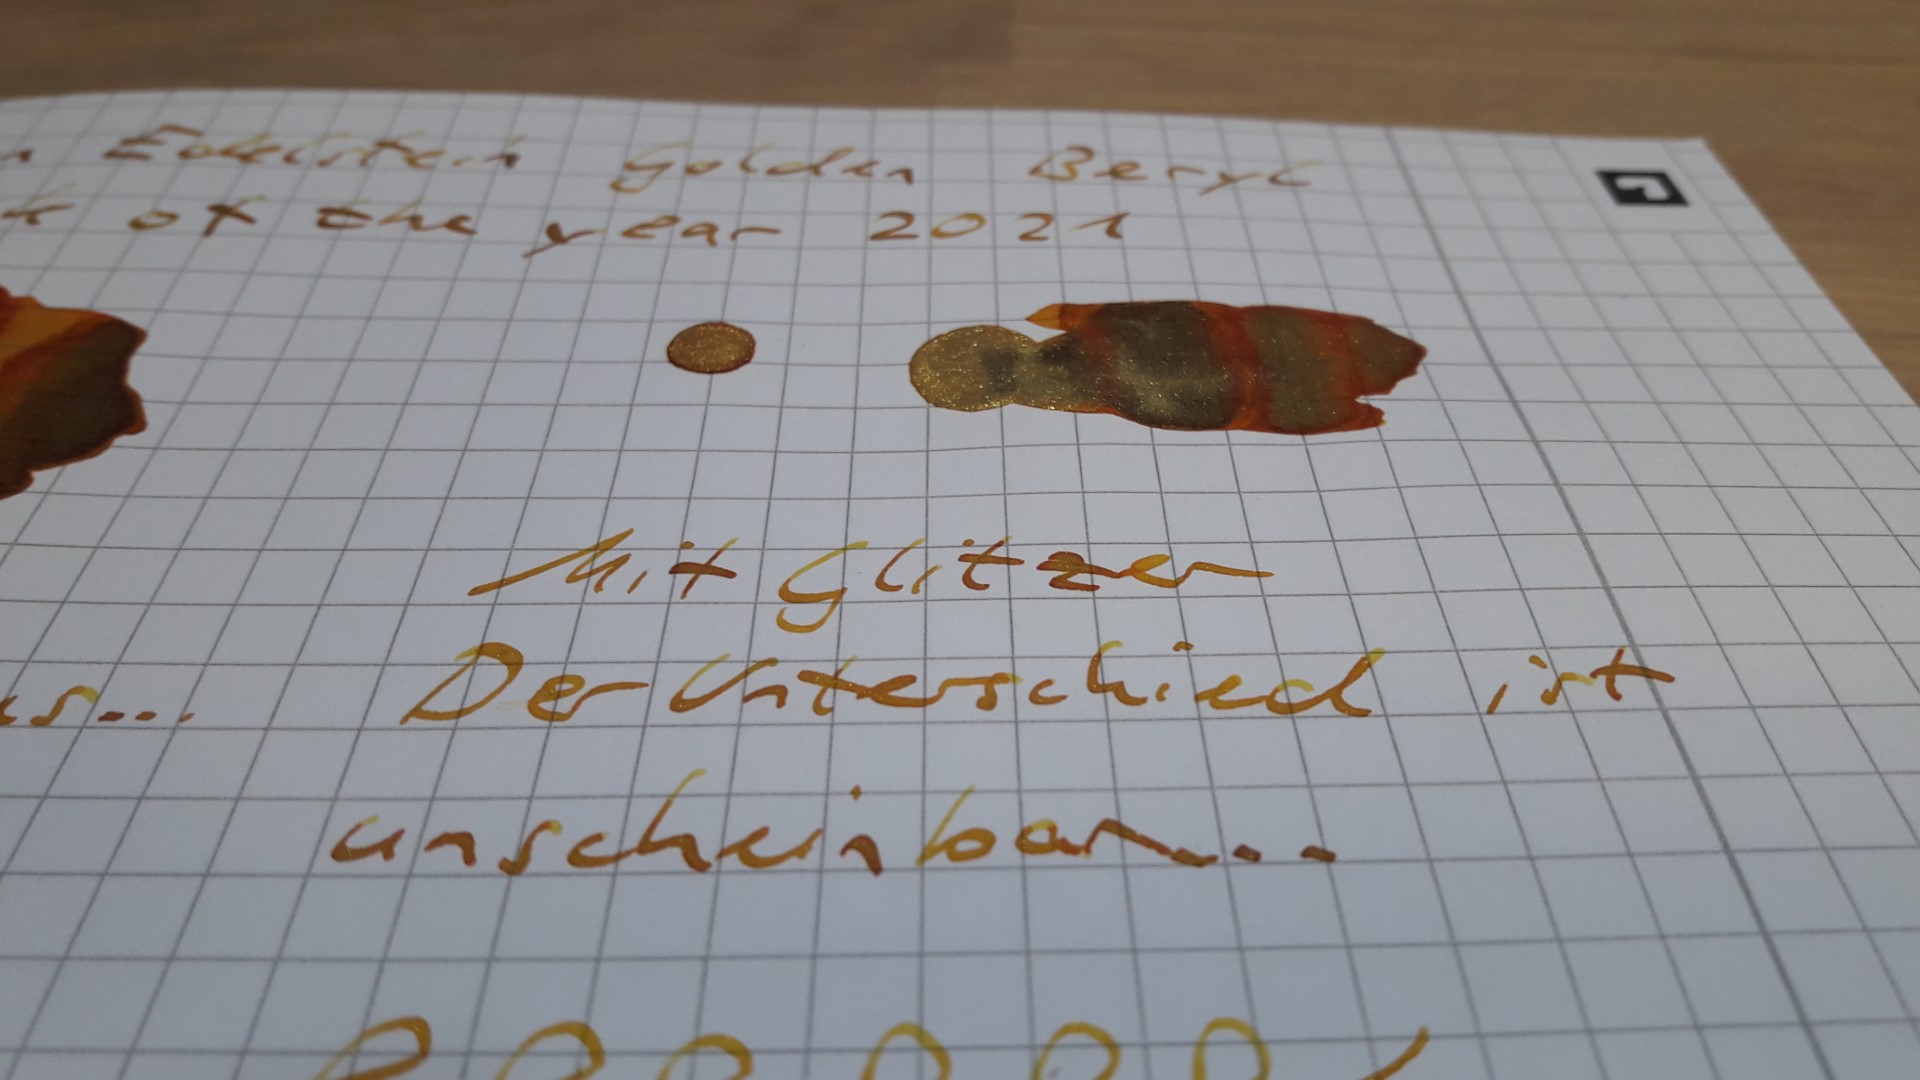 Edelstein Golden Beryl
of the year 2021
Mit Glitzer
... Der Unterschied ist
unscheinbar...